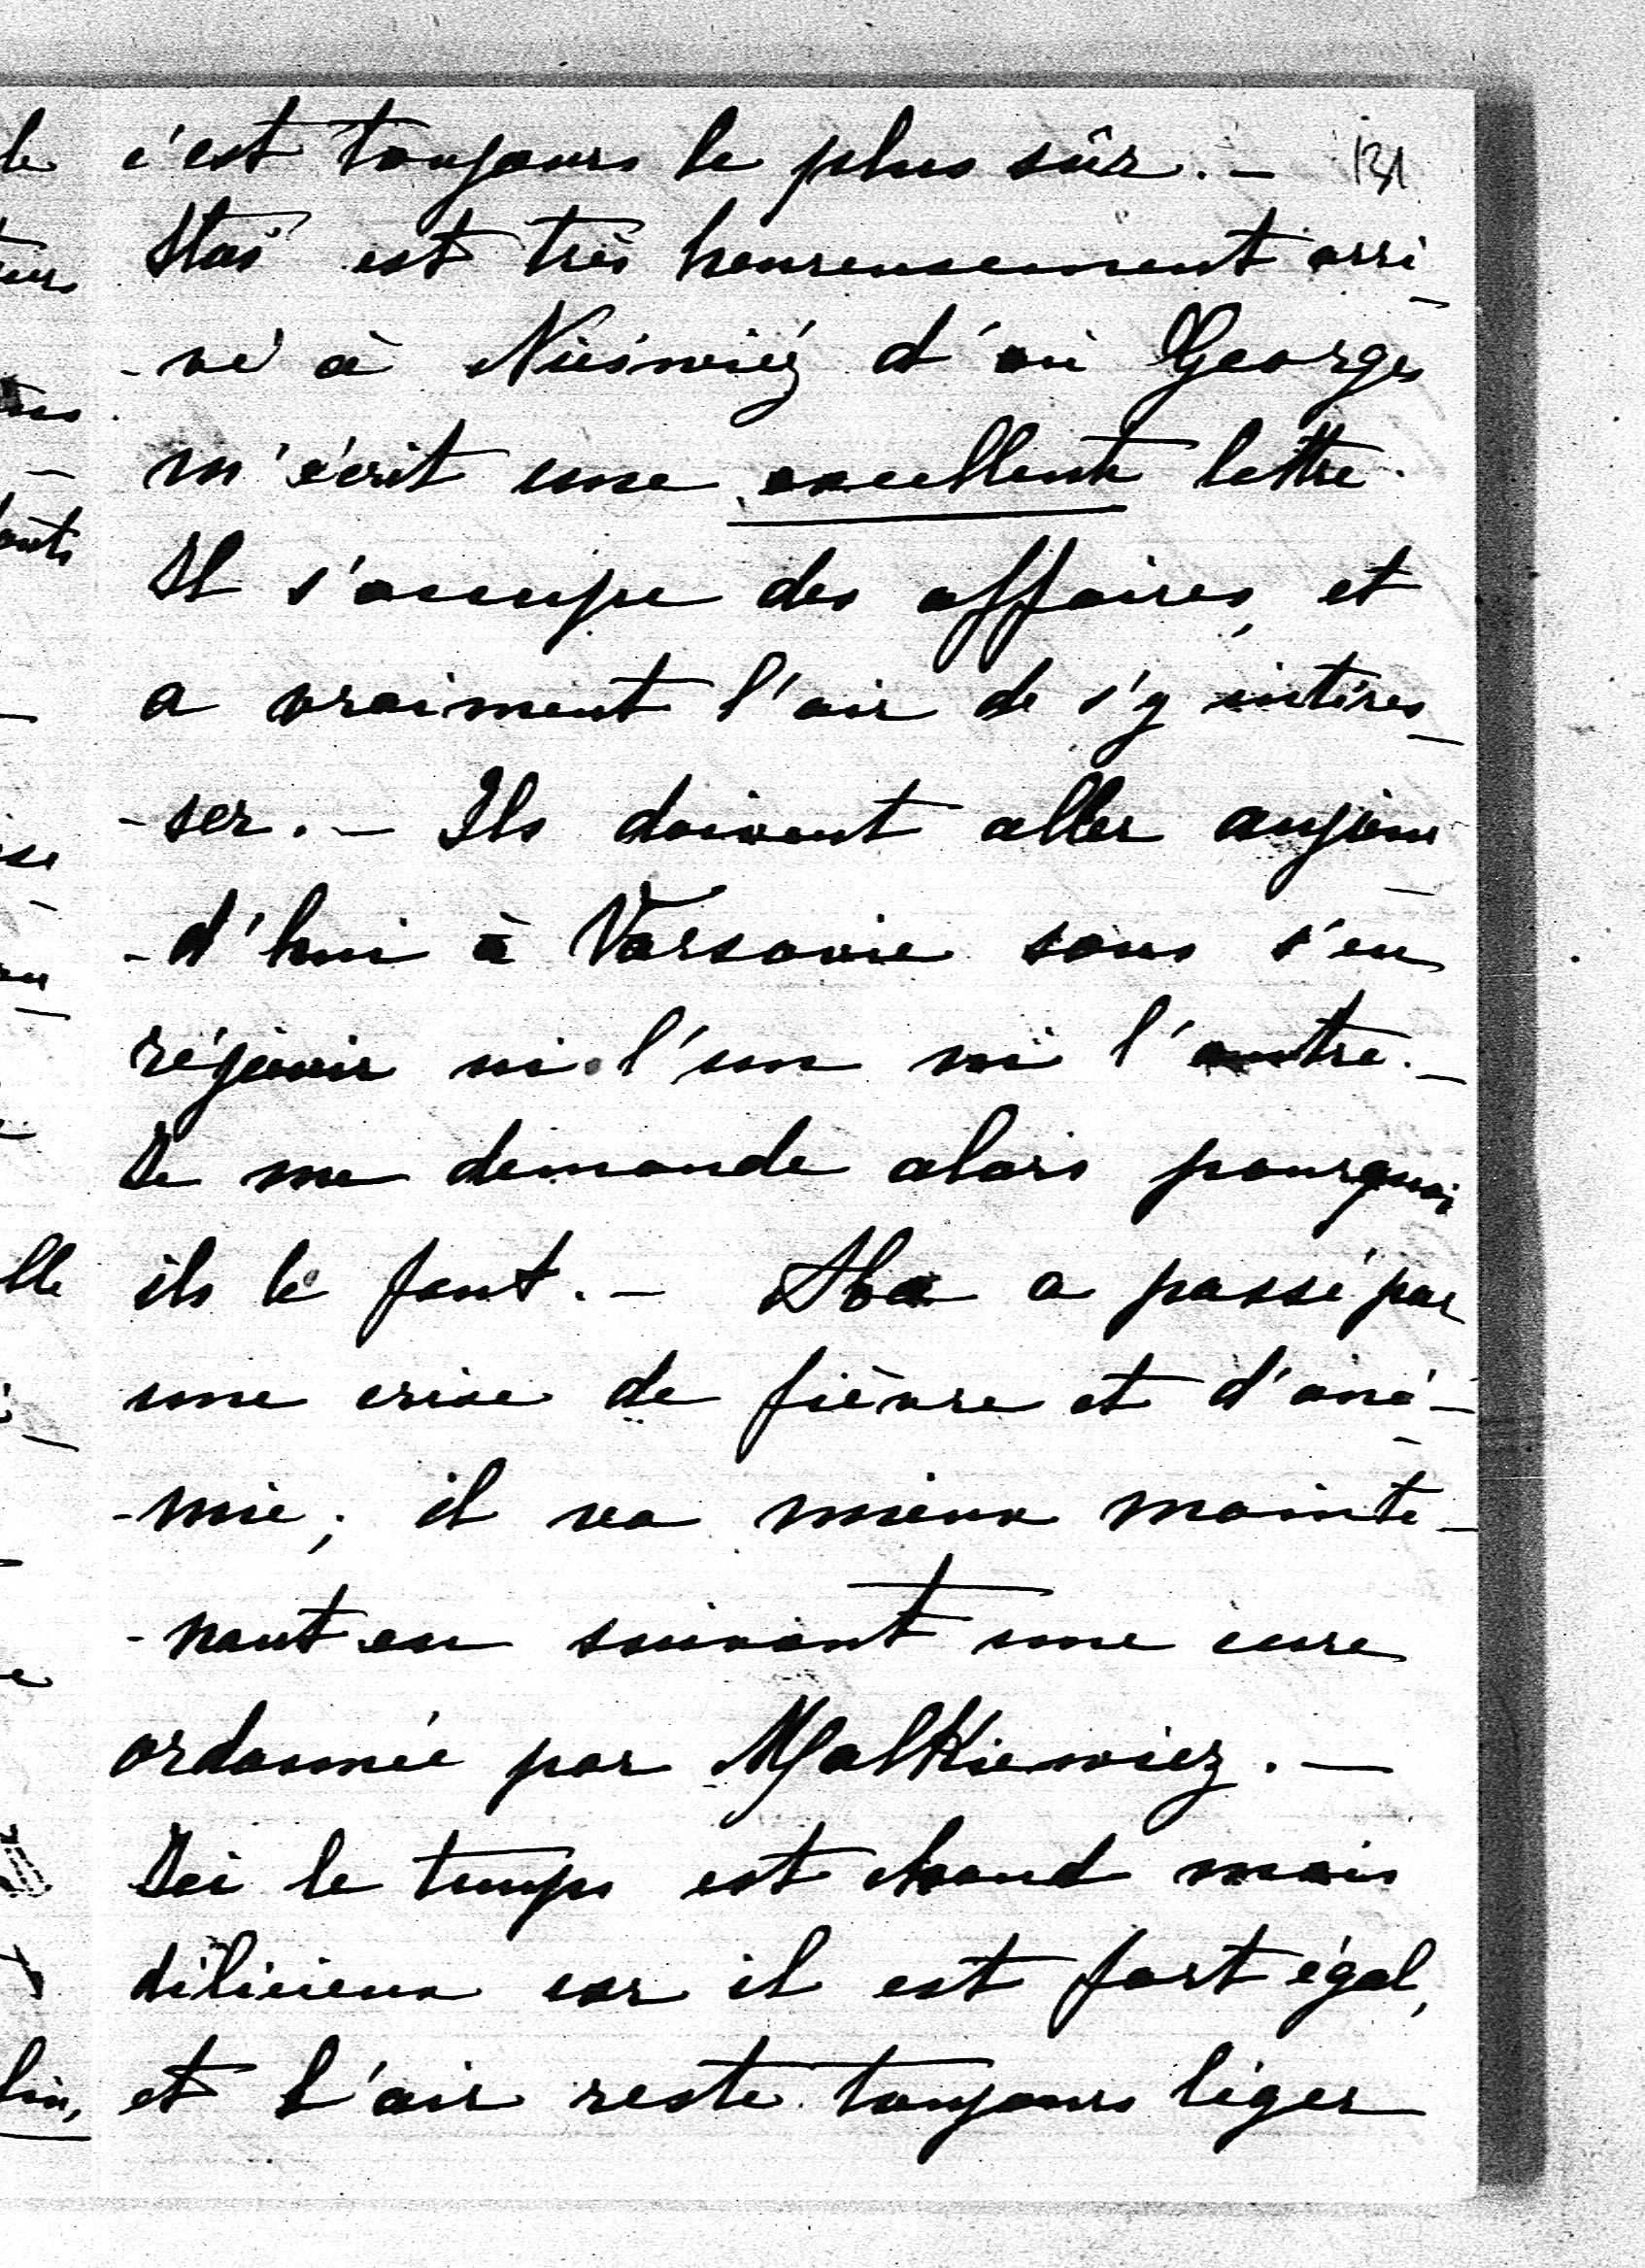 c'est toujours le plus sûr. – 131
Staś est très heureusement arri-
-vé à Nieśwież d'où Georges
m'écrit une excellente lettre.
Il s'occupe des affaires, et
a vraiment l'air de s'y intéres-
-ser. – Ils doivent aller aujour-
-d'hui à Varsovie sans s'en
réjouir ni l'un ni l'autre. –
Je me demande alors pourquoi
ils le font. – Aba a passé par
une crise de fièvre et d'ané-
-mie; il va mieux mainte-
-nant en suivant une cure
ordonnée par Malkiewicz. –
Ici le temps est chaud mais
délicieux car il est fort égal,
et l'air reste toujours léger